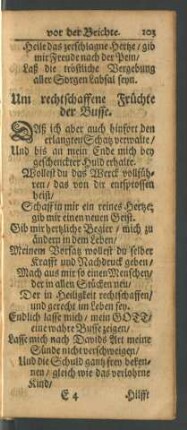 vor der Beichte. 103
Heile das zerschlagne Hertze / gib
mir Freude nach der Pein /
Laß die tröstliche Vergebung
aller Sorgen Labsal seyn.
Um rechtschaffene Früchte
der Busse.
Daß ich aber auch hinfort den
erlangten Schatz verwalte /
Und bis an mein Ende mich bey
geschenckter Huld erhalte.
Wollest du das Werck vollfüh-
ren / das von dir entsprossen
heist /
Schaff in mir ein reines Hertze /
gib mir einen neuen Geist.
Gib mir hertzliche Begier / mich zu
ändern in dem Leben /
Meinem Vorsatz wollest du selber
Krafft und Nachdruck geben /
Mach aus mir so einen Menschen /
der in allen Stücken neu /
Der in Heiligkeit rechtschaffen /
und gerecht im Leben sey.
Endlich lasse mich / mein GOTT /
eine wahre Busse zeigen /
Lasse mich nach Davids Art meine
Sünde nicht verschweigen /
Und die Schuld gantz frey beken-
nen / gleich wie das verlohrne
Kind /
E 4 Hilfft